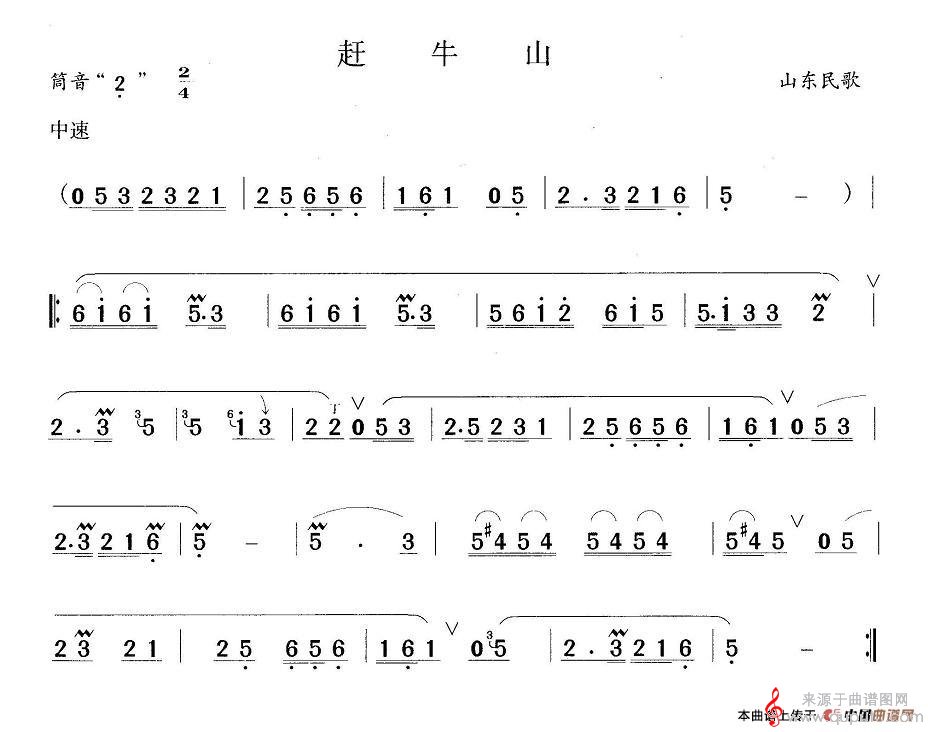 赶 牛 山
筒音“2̣” 2/4 山东民歌
中速
( 0 5 3 2 3 2 1 | 2 5̣ 6̣ 5̣ 6̣ | 1 6̣ 1 0 5̣ | 2 . 3 2 1 6̣ | 5̣ – ) |
|: 6 i 6 i 5 . 3 | 6 i 6 i 5 . 3 | 5 6 i 2̇ 6 i 5 | 5 . i 3 3 2 V |
2 . 3 3 5 | 3 5 6 i 3 | 2 2 T V 0 5 3 | 2 . 5 2 3 1 | 2 5̣ 6̣ 5̣ 6̣ | 1 6̣ 1 V 0 5 3 |
2 . 3 2 1 6̣ | 5̣ – | 5 . 3 | 5 #4 5 4 5 4 5 4 | 5 #4 5 V 0 5 |
2 3 2 1 | 2 5̣ 6̣ 5̣ 6̣ | 1 6̣ 1 V 0 3 5 | 2 . 3 2 1 6̣ | 5̣ – :|
来源于曲谱图网
本曲谱上传于 中国曲谱网